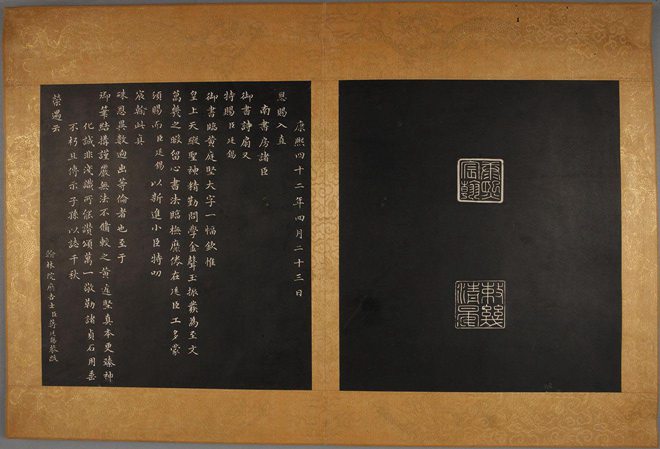 康熙
宸翰
敕幾
清晏
康熙四十二年四月二十三日
恩賜入直
南書房諸臣
御書詩扇又
特賜臣廷錫
御書臨黃庭堅大字一幅欽惟
皇上天縱聖神精勤問學金聲玉振發為至文
萬幾之暇留心書法臨橅靡倦在廷臣工多蒙
頒賜而臣廷錫以新進小臣特叨
宸翰此真
殊恩異數迥出等倫者也至于
御筆結搆謹嚴無法不備較之黃庭堅真本更臻神
化誠非淺識所能讚頌萬一敬勒諸貞石用垂
不朽且傳示子孫以誌千秋
榮遇云
翰林院庶吉士臣蔣廷錫恭跋